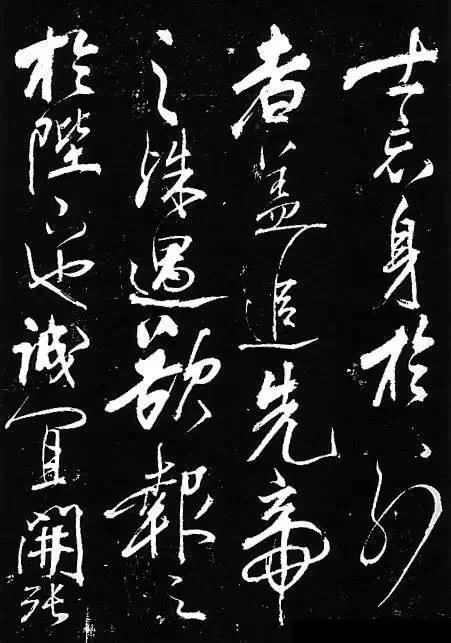 士忘身於外
者蓋追先帝
之殊遇欲報之
於陛下也誠宜開张